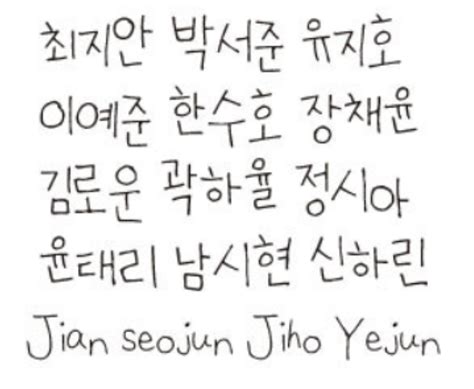 최지안 박서준 유지호
이예준 한수호 장채윤
김로운 곽하율 정시아
윤태리 남시현 신하린
Jian seojun Jiho Yejun